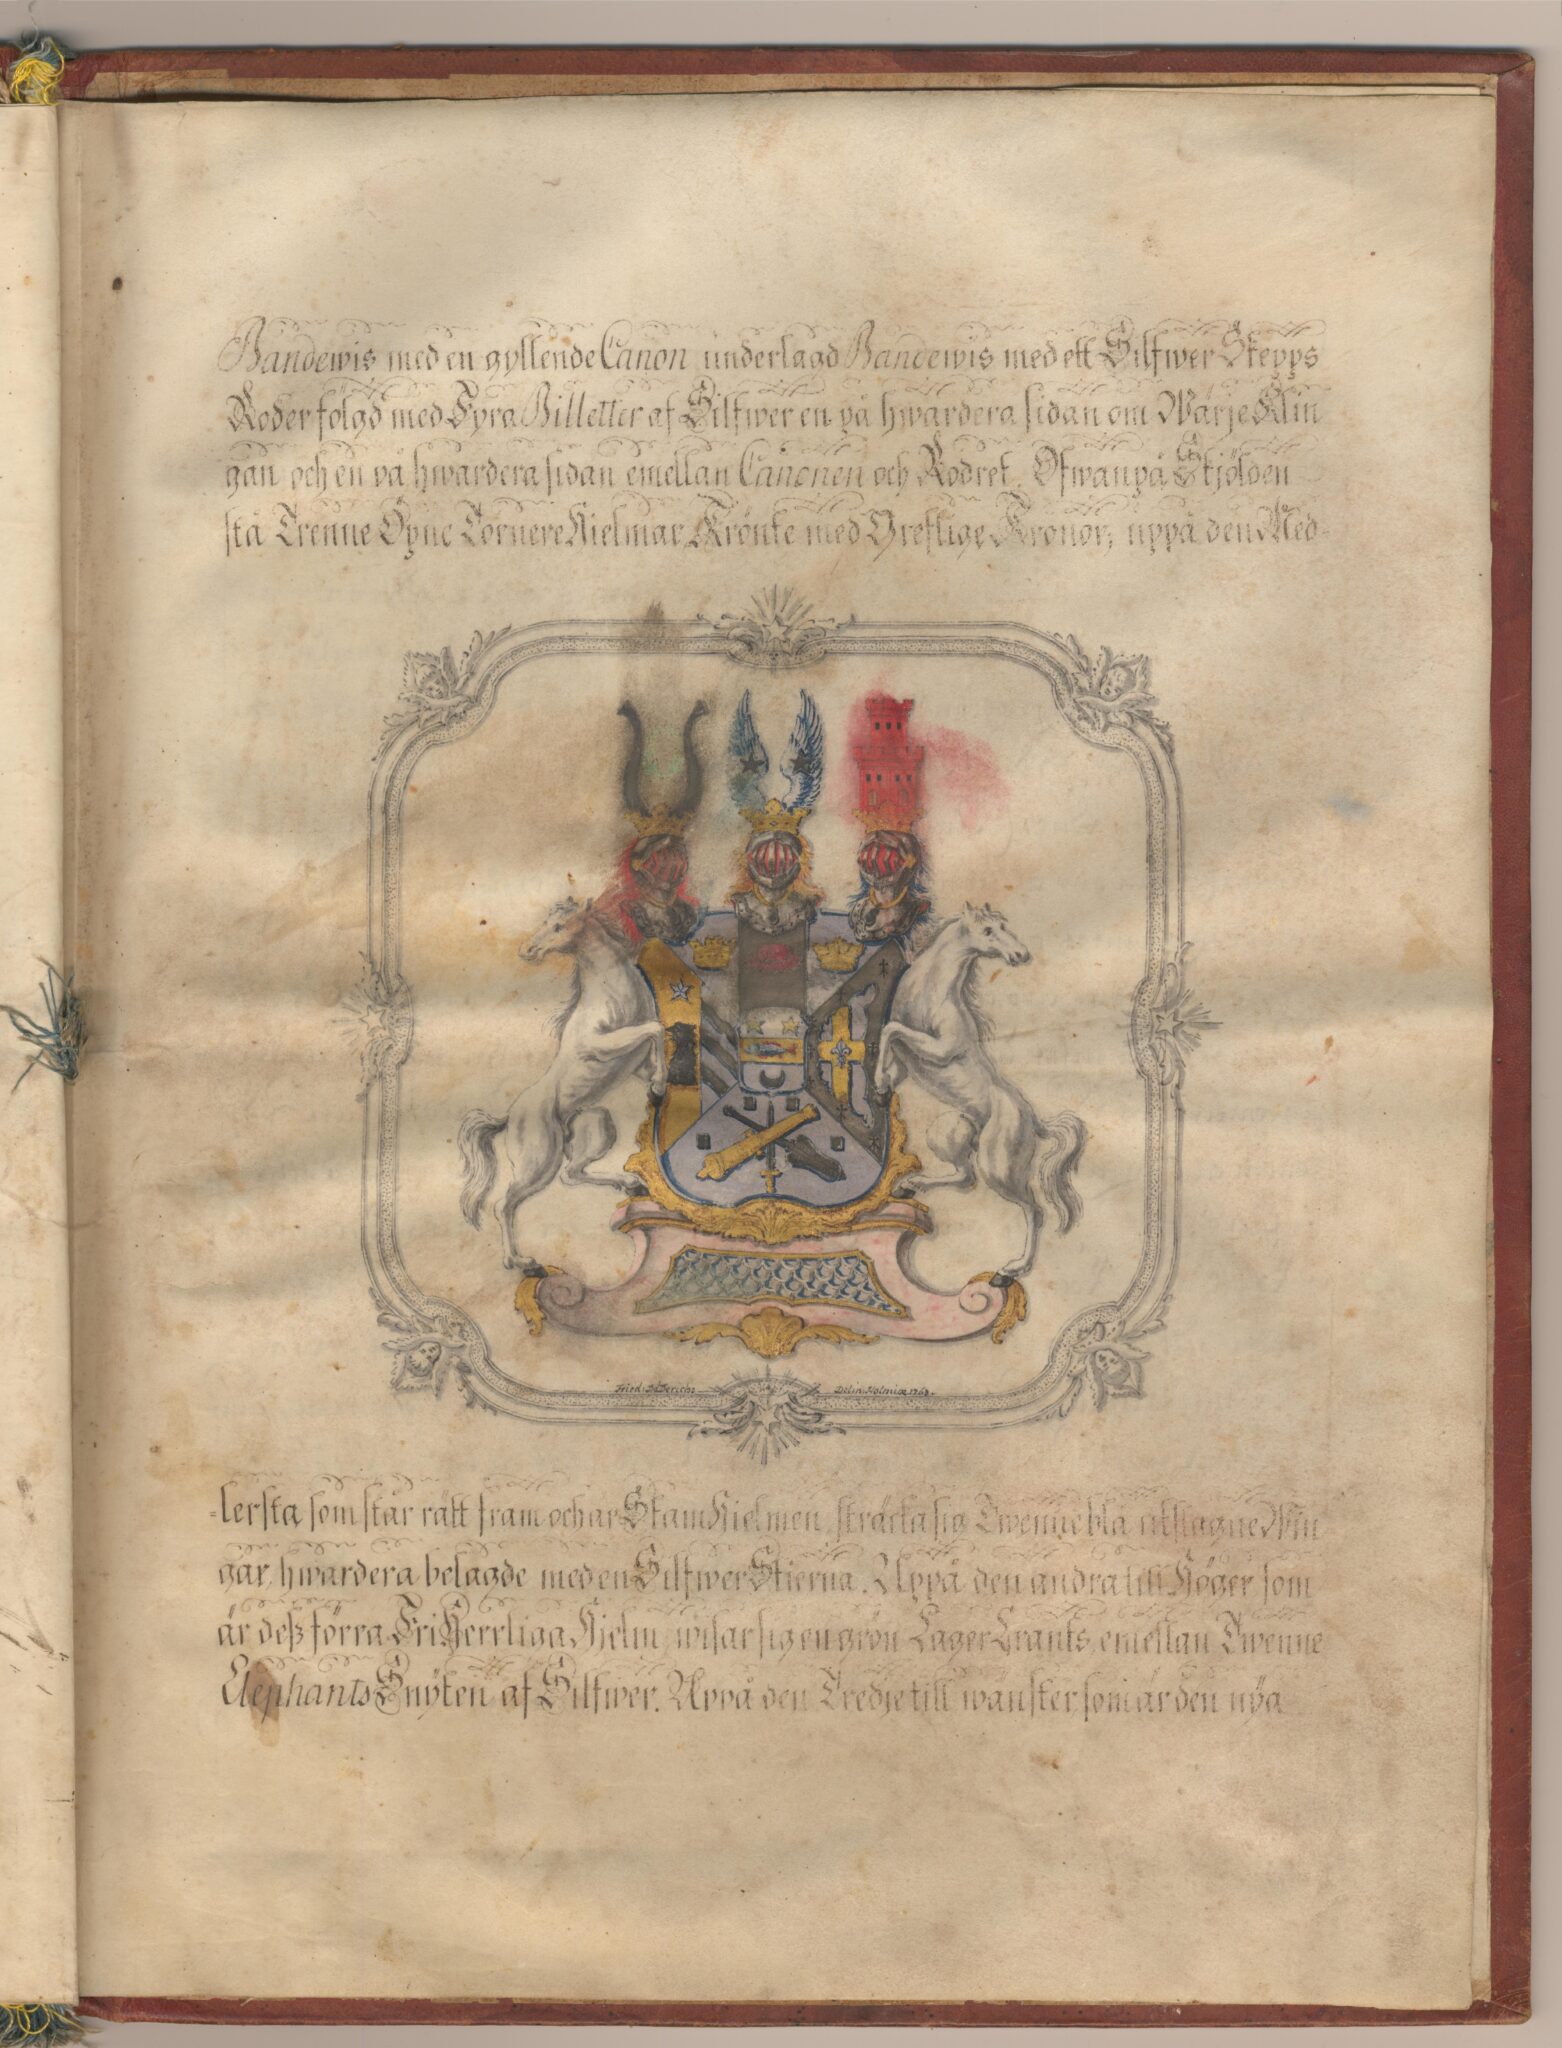 Bandewis med en gyllende Canon underlagd Bandewis med ett Silfwer Skepps
Roder följd med Fyra Billetter af Silfwer en på hwardera sidan om Wärje Klin
gan och en på hwardera sidan emellan Canonen och Rodret. Ofwanpå Skjölden
stå Trenne Öpne Tornere Hielmar, Krönte med Greflige Kronor; uppå den Med-
Fried: Delin: Holmiæ
-lersta som står rätt fram och är Stam Hielmen, sträcka sig Twenne blå utslagne Win
gar, hwardera belagde med en Silfwer Stierna. Uppå den andra till Höger som
är deß förra Friherrliga Hjelm, wisar sig en grön Lager Crants, emellan Twenne
Elephants Snyten af Silfwer. Uppå den Tredje till wänster, som är den nya